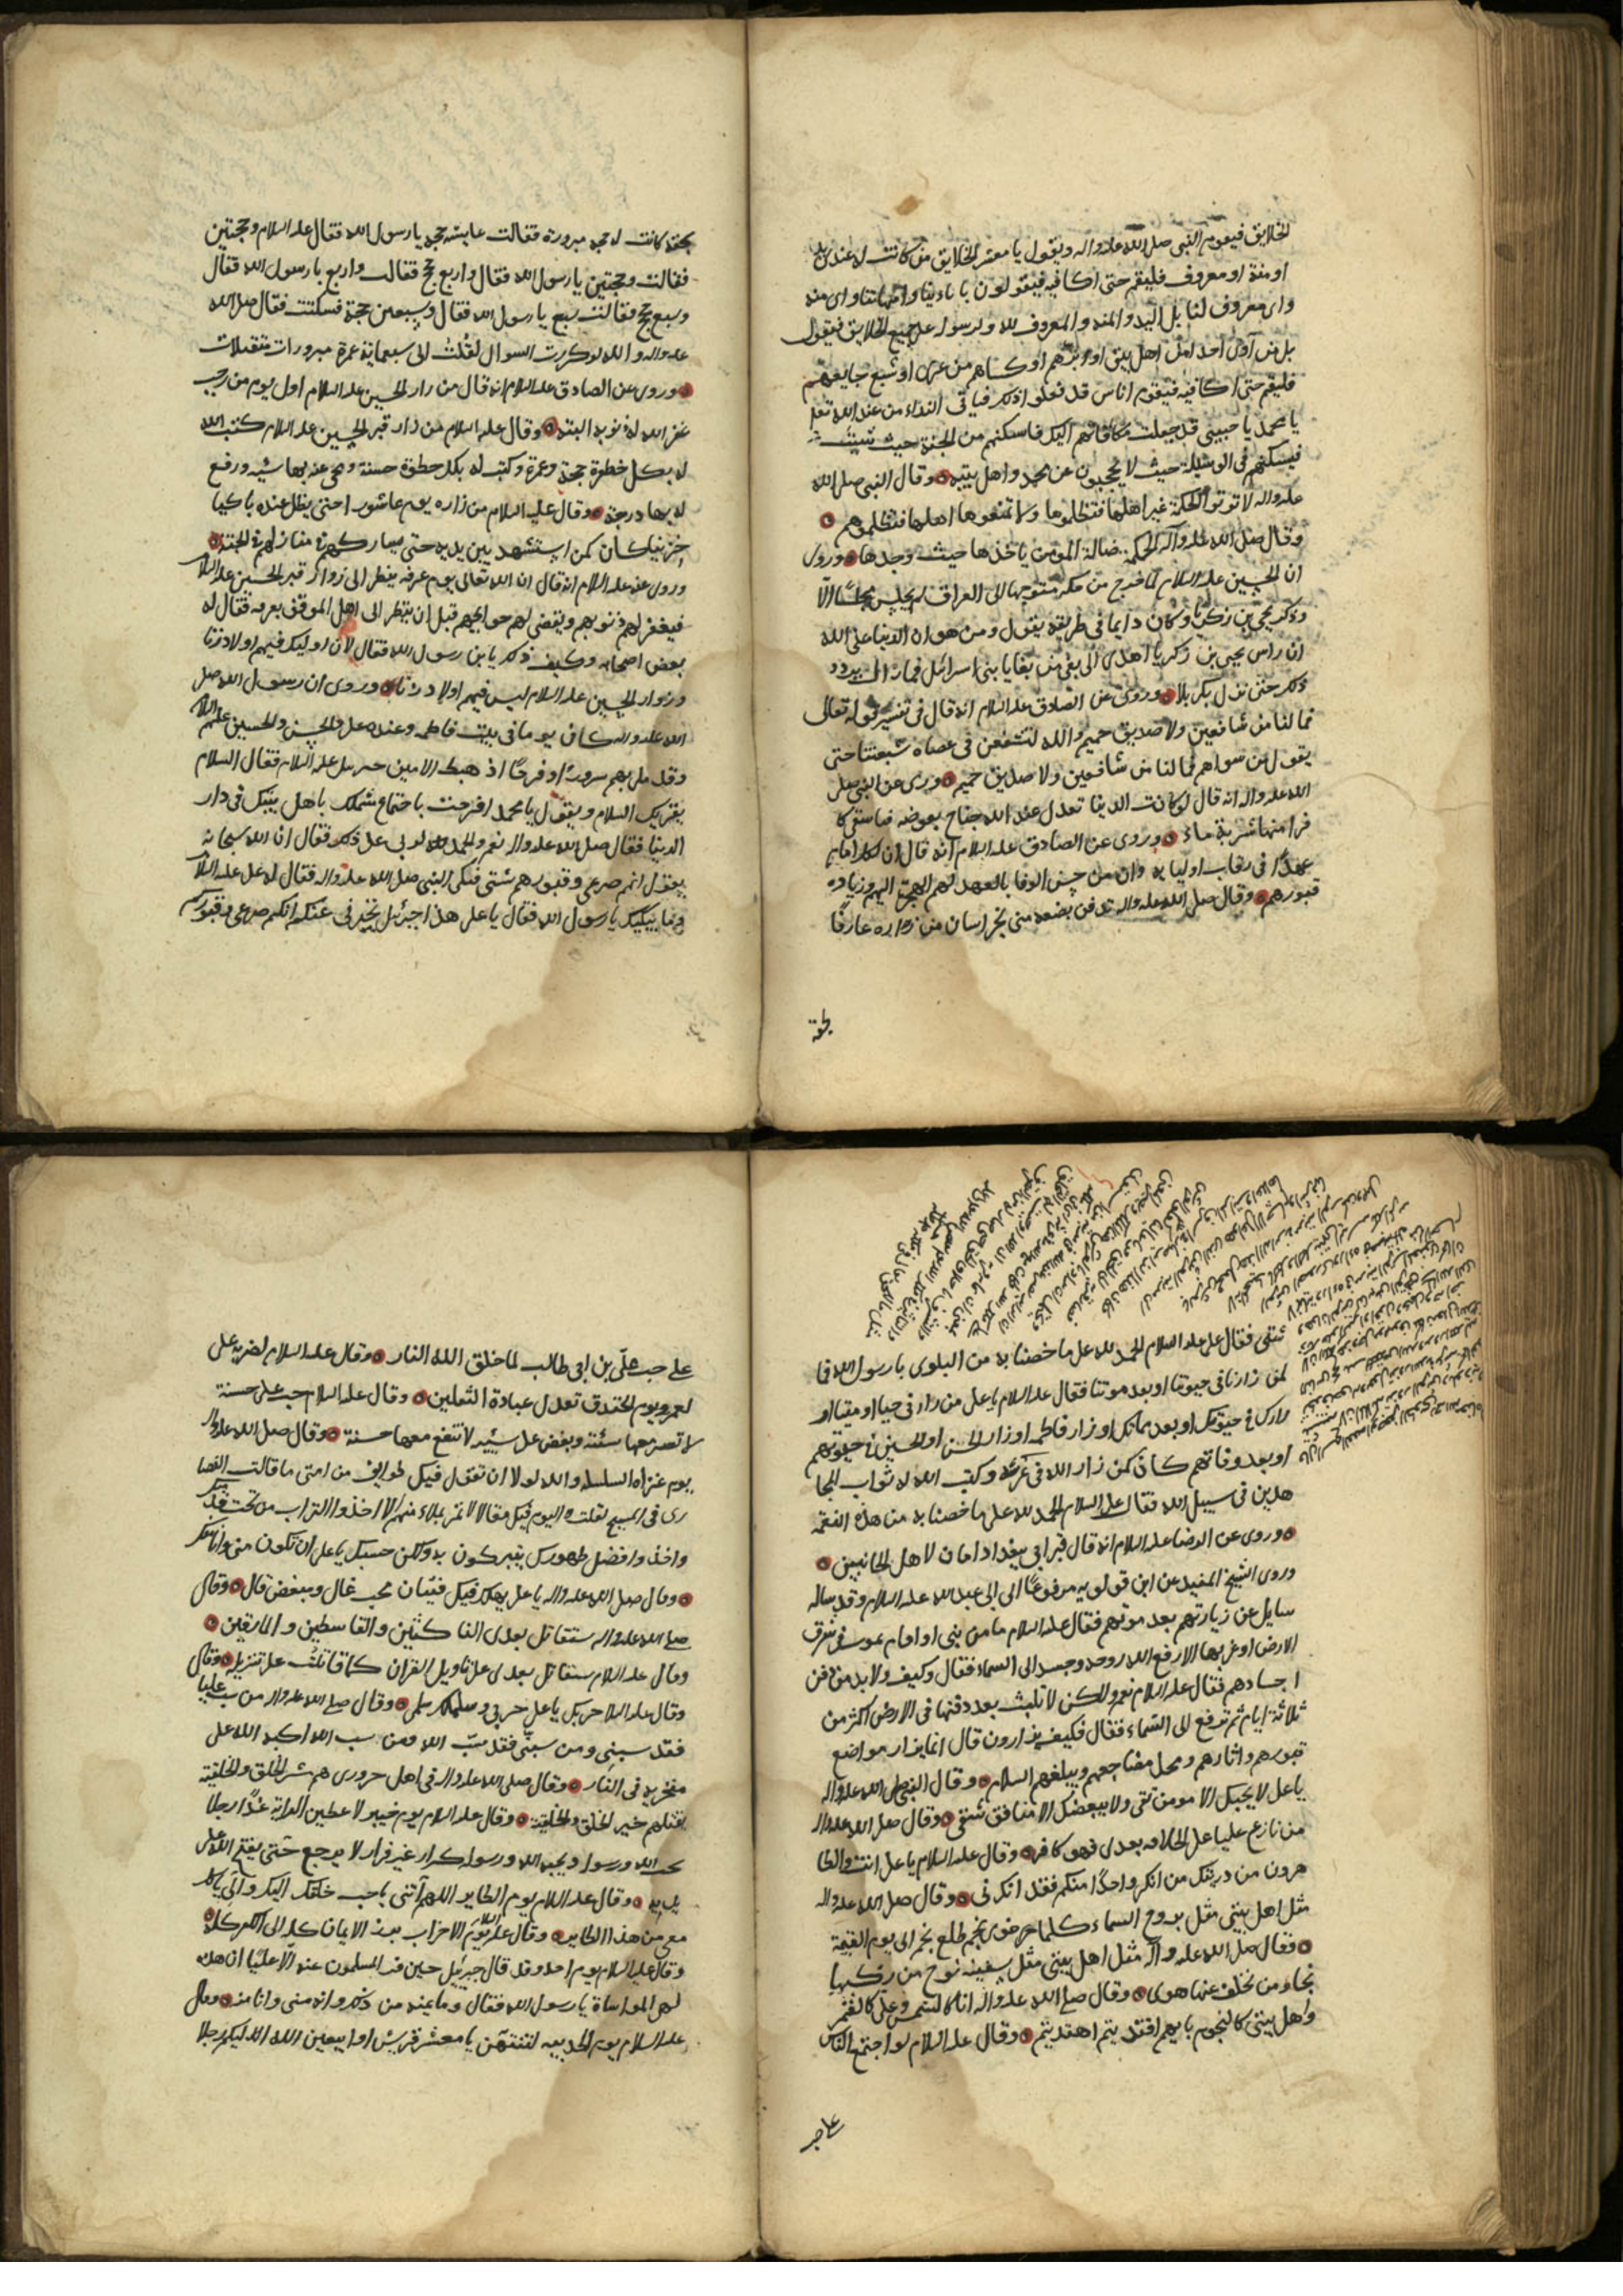 الخلايق فيقوم النبى صلى الله عليه واله ويقول يا معشر الخلايق من كانت له عندى يد
او منة او معروف فليقم حتى اكافيه فيقولون بابائنا وامهاتنا واى منه
واى معروف لنا بل اليد والمنه والمعروف لله ولرسوله على جميع الخلايق فيقول
بل من آوى احدا من اهل بيتى او برهم او كساهم من عرى او شبع جايعهم
فليقم حتى اكافيه فيقوم اناس قد فعلوا ذلك فياتى النداء من عند الله تعالى
يا محمد يا حبيبى قد جعلت مكافاتهم اليك فاسكنهم من الجنة حيث شئت
فيسكنهم فى الوسيلة حيث لا يحجبون عن محمد واهل بيته وقال النبى صلى الله
عليه واله لا توتوا الحكمة غير اهلها فتظلموها ولا تمنعوها اهلها فتظلموهم
وقال صلى الله عليه وآله الحكمة ضالة المؤمن ياخذها حيث وجدها وروى
ان الحسين عليه السلام لما خرج من مكة متوجها الى العراق لم يجلس مجلسا الا
وذكر يحيى بن زكريا وكان دايما فى طريقه يقول ومن هوان الدنيا على الله
ان راس يحيى بن زكريا اهدى الى بغى من بغايا بنى اسرائل فمازال يردد
ذلك حتى نزل بكربلا وروى عن الصادق عليه السلام انه قال فى تفسير قوله تعالى
فما لنا من شافعين ولا صديق حميم والله لنشفعن فى عصاة شيعتنا حتى
يقول من سواهم فما لنا من شافعين ولا صديق حميم وروى عن النبى صلى
الله عليه واله انه قال لو كانت الدنيا تعدل عند الله جناح بعوضه ما سقى كا
فرا منها شربة ماء وروى عن الصادق عليه السلام انه قال ان لكل امام
عهدًا فى رقاب اوليائه وان من حسن الوفا بالعهد لهم الهجرة اليهم وزيارة
قبورهم وقال صلى الله عليه واله تدفن بضعه منى بخراسان من زاره عارفًا
بحقه
بحقه كانت له حجه مبرورة فقالت عايشه حجه يا رسول الله فقال عليه السلام وحجتين
فقالت وحجتين يا رسول الله فقال واربع حجج فقالت واربع يا رسول الله فقال
وسبع حجج فقالت سبع يا رسول الله فقال وسبعين حجة فسكتت فقال صلى الله
عليه واله والله لو كررت السوال لقلت الى سبعماية عمرة مبرورات متقبلات
وروى عن الصادق عليه السلام انه قال من زار الحسين عليه السلام اول يوم من رجب
غفر الله له ذنوبه البتة وقال عليه السلام من زار قبر الحسين عليه السلام كتب الله
له بكل خطوة حجة وعمرة وكتب له بكل خطوة حسنة ومحى عنه بها سيئه ورفع
له بها درجة وقال عليه السلام من زاره يوم عاشورا حتى يظل عنده باكيا
حزينا كان كمن استشهد بين يديه حتى يشاركهم فى منازلهم فى الجنة
وروى عنه عليه السلام انه قال ان الله تعالى يوم عرفه ينظر الى زوار قبر الحسين عليه السلام
فيغفر لهم ذنوبهم ويقضى لهم حوايجهم قبل ان ينظر الى اهل الموقف بعرفه فقال له
بعض اصحابه وكيف ذلك يابن رسول الله فقال لان اوليك فيهم اولاد زنا
وزوار الحسين عليه السلام ليس فيهم اولاد زنا وروى ان رسول الله صلى
الله عليه واله كان يوما فى بيت فاطمه وعنده على والحسن والحسين عليهم السلام
وقد ملى بهم سرورًا وفرحًا اذ هبط الامين جبرئيل عليه السلام فقال السلام
يقريك السلام ويقول يا محمد افرحت باجتماع شملك باهل بيتك فى دار
الدنيا فقال صلى الله عليه واله نعم والحمد لله لربى على ذلك فقال ان الله سبحانه
يقول انهم صرعى وقبورهم شتى فبكى النبى صلى الله عليه واله فقال له على عليه السلام
وما يبكيك يا رسول الله فقال يا على هذا جبرئيل يخبرنى عنكم انكم صرعى وقبوركم
شتى فقال على عليه السلام الحمد لله على ما خصنا به من البلوى يا رسول الله فما
لمن زارنا فى حيوتنا او بعد موتنا فقال عليه السلام يا على من زارنى حيا او ميتا او
زارك فى حيوتك او بعد مماتك او زار فاطمه او زار الحسن او الحسين فى حيوتهم
او بعد وفاتهم كان كمن زار الله فى عرشه وكتب الله له ثواب المجا
هدين فى سبيل الله فقال على السلام الحمد لله على ما خصنا به من هذه النعمة
وروى عن الرضا عليه السلام انه قال قبر ابى ببغداد امان لاهل الجانبين
وروى الشيخ المفيد عن ابن قولويه مرفوعًا الى ابى عبد الله عليه السلام وقد ساله
سايل عن زيارتهم بعد موتهم فقال عليه السلام ما من نبى او امام يموت فى شرق
الارض او غربها الا رفع الله روحه وجسده الى السماء فقال وكيف ولا بد من دفن
اجسادهم فقال عليه السلام نعم ولكن لا تلبث بعد دفنها فى الارض اكثر من
ثلاثة ايام ثم ترفع الى السماء فقال فكيف يزارون قال انما يزار مواضع
قبورهم واثارهم ومحل مضاجعهم ويبلغهم السلام وقال النبى صلى الله عليه واله
يا على لا يحبك الا مومن تقى ولا يبغضك الا منافق شقى وقال صلى الله عليه واله
من نازع عليا على الخلافه بعدى فهو كافر وقال عليه السلام يا على انت والطا
هرون من ذريتك من انكر واحدًا منكم فقد انكرنى وقال صلى الله عليه واله
مثل اهل بيتى مثل بروج السماء كلما خوى نجم طلع نجم الى يوم القيمة
وقال صلى الله عليه وآله مثل اهل بيتى مثل سفينه نوح من ركبها
نجا ومن تخلف عنها هوى وقال صلى الله عليه واله انا كالشمس وعلى كالقمر
واهل بيتى كالنجوم بايهم اقتديتم اهتديتم وقال عليه السلام لو اجتمع الناس
على حب
على حب على بن ابى طالب لما خلق الله النار وقال عليه السلام لضربه على
لعمرو يوم الخندق تعدل عبادة الثقلين وقال عليه السلام حب على حسنة
لا تضر معها سيئة وبغض على سيئه لا تنفع معها حسنة وقال صلى الله عليه واله
يوم غزاة السلسله والله لولا ان تقول فيك طوايف من امتى ما قالت النصا
رى فى المسيح لقلت اليوم فيك مقالا لا تمر بملاء منهم الا اخذوا التراب من تحت قدميك
واخذوا فضل طهورك يتبركون به ولكن حسبك يا على ان تكون منى وانا منك
وقال صلى الله عليه واله يا على يهلك فيك فئتان محب غال ومبغض قال وقال
صلى الله عليه واله ستقاتل بعدى الناكثين والقاسطين والمارقين
وقال عليه السلام ستقاتل بعدى على تاويل القران كما قاتلت على تنزيله وقال
وقال عليه السلام حربك يا على حربى وسلمك سلمى وقال صلى الله عليه واله من سب عليا
فقد سبنى ومن سبنى فقد سب الله ومن سب الله اكبه الله على
منخريه فى النار وقال صلى الله عليه واله فى اهل حرورى هم شر الخلق والخليقة
يقتلهم خير الخلق والخليقة وقال عليه السلام يوم خيبر لاعطين الراية غدًا رجلا
يحب الله ورسوله ويحبه الله ورسوله كرار غير فرار لا يرجع حتى يفتح الله على
يديه وقال عليه السلام يوم الطاير اللهم آتنى باحب خلقك اليك والى ياكل
معى من هذا الطاير وقال عليه السلام يوم الاحزاب برز الايمان كله الى الكفر كله
وقال عليه السلام يوم احد وقد قال جبرئيل حين فر المسلمون عنه الا عليا ان هذه
لهى المواساة يا رسول الله فقال وما يمنعه من ذلك وانه منى وانا منه وقال
عليه السلام يوم الحديبيه لتنتهن يا معشر قريش او ليبعثن الله اليكم رجلا